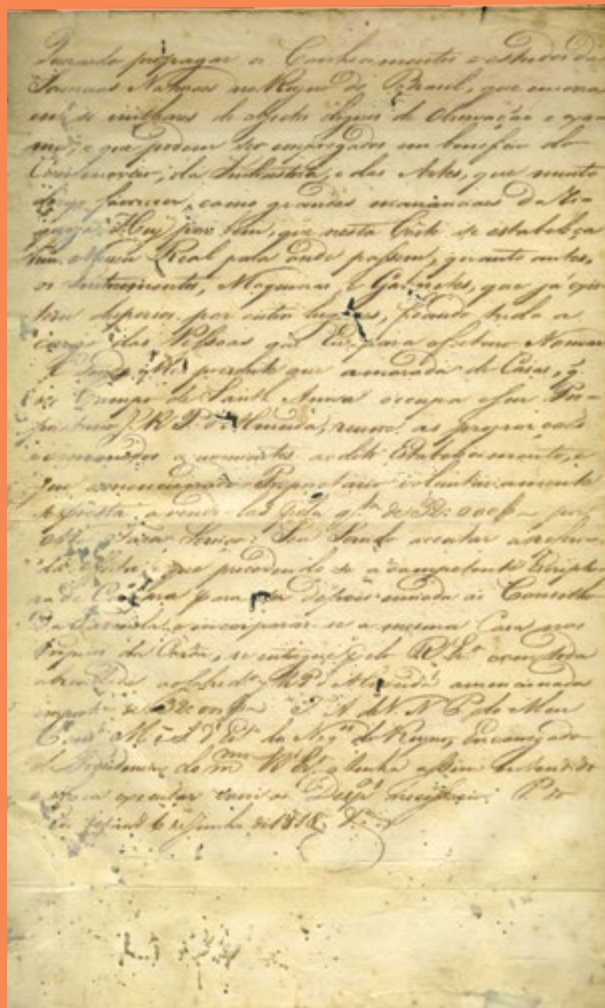 Querendo propagar os Conhecimentos e estudos das
Sciencias Naturaes no Reyno do Brasil, que encerra
em si milhares de objectos dignos de observação e exa
me, e que podem ser empregados em beneficio do
Commercio, da Industria, e das Artes, que muito
desejo favorecer, como grandes mananciaes da Ri
queza: Hey por bem, que nesta Corte se estabeleça
hum Museu Real para onde passem, quanto antes,
os Instrumentos, Maquinas, e Gabinetes, que já exis
tem dispersos por outros lugares, ficando tudo a
cargo das Pessoas que Eu para o futuro Nomear
que a morada de Casas, q
no Campo de Santa Anna occupa o seu Pro
prietario J. R. P. de Almeida, reune as proporções
e commodos convenientes ao dito Estabelecimento, e
que o mencionado Proprietario voluntariamente
se presta a vendella pela de 32:000$ por
Me fazer Serviço: Sou Servido acceitar a referi
da offerta, e que procedendo se á competente Escriptu
ra de Compra para ser depois enviada ao Conselho
da Fazenda, e incorporar se a mesma Casa nos
Proprios da Coroa, se entregue pelo R. E. com toda
a brevidade ao J. R. P. Almeida a mencionada
de 32:000$ T. A. de V. N. P. do Meu
do Reyno, Encarregado
da Presidencia do m. o tenha assim entendido
e o faça executar com os necessarios. P. do
Rio de Jan. 6 de Junho de 1818.